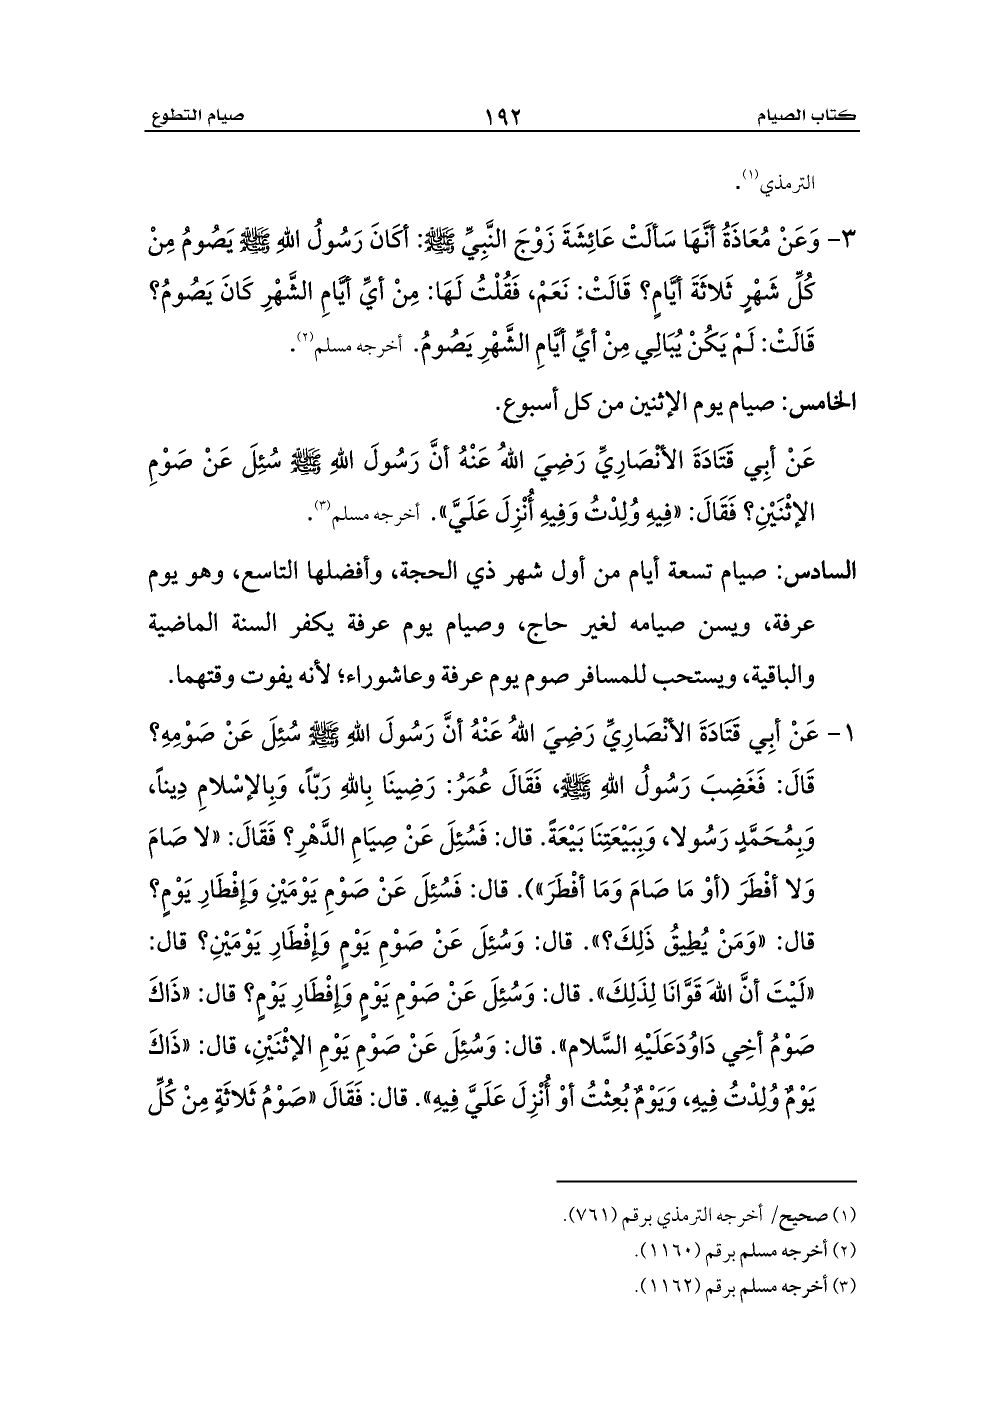 كتاب الصيام ١٩٢ صيام التطوع
الترمذي(١).
٣- وَعَنْ مُعَاذَةُ أنَّهَا سَألَتْ عَائِشَةَ زَوْجَ النَّبِيِّ ﷺ: أكَانَ رَسُولُ اللهِ ﷺ يَصُومُ مِنْ
كُلِّ شَهْرٍ ثَلاثَةَ أيَّامٍ؟ قَالَتْ: نَعَمْ، فَقُلْتُ لَهَا: مِنْ أيِّ أيَّامِ الشَّهْرِ كَانَ يَصُومُ؟
قَالَتْ: لَمْ يَكُنْ يُبَالِي مِنْ أيِّ أيَّامِ الشَّهْرِ يَصُومُ. أخرجه مسلم(٢).
الخامس: صيام يوم الإثنين من كل أسبوع.
عَنْ أبِي قَتَادَةَ الأنْصَارِيِّ رَضِيَ اللهُ عَنْهُ أنَّ رَسُولَ اللهِ ﷺ سُئِلَ عَنْ صَوْمِ
الإثْنَيْنِ؟ فَقَالَ: «فِيهِ وُلِدْتُ وَفِيهِ أُنْزِلَ عَلَيَّ». أخرجه مسلم(٣).
السادس: صيام تسعة أيام من أول شهر ذي الحجة، وأفضلها التاسع، وهو يوم
عرفة، ويسن صيامه لغير حاج، وصيام يوم عرفة يكفر السنة الماضية
والباقية، ويستحب للمسافر صوم يوم عرفة وعاشوراء؛ لأنه يفوت وقتهما.
١- عَنْ أبِي قَتَادَةَ الأنْصَارِيِّ رَضِيَ اللهُ عَنْهُ أنَّ رَسُولَ اللهِ ﷺ سُئِلَ عَنْ صَوْمِهِ؟
قَالَ: فَغَضِبَ رَسُولُ اللهِ ﷺ، فَقَالَ عُمَرُ: رَضِينَا بِاللهِ رَبّاً، وَبِالإسْلامِ دِيناً،
وَبِمُحَمَّدٍ رَسُولا، وَبِبَيْعَتِنَا بَيْعَةً. قال: فَسُئِلَ عَنْ صِيَامِ الدَّهْرِ؟ فَقَالَ: «لا صَامَ
وَلا أفْطَرَ (أوْ مَا صَامَ وَمَا أفْطَرَ»). قال: فَسُئِلَ عَنْ صَوْمِ يَوْمَيْنِ وَإِفْطَارِ يَوْمٍ؟
قال: «وَمَنْ يُطِيقُ ذَلِكَ؟». قال: وَسُئِلَ عَنْ صَوْمِ يَوْمٍ وَإِفْطَارِ يَوْمَيْنِ؟ قال:
«لَيْتَ أنَّ اللهَ قَوَّانَا لِذَلِكَ». قال: وَسُئِلَ عَنْ صَوْمِ يَوْمٍ وَإِفْطَارِ يَوْمٍ؟ قال: «ذَاكَ
صَوْمُ أخِي دَاوُدَعَلَيْهِ السَّلام». قال: وَسُئِلَ عَنْ صَوْمِ يَوْمِ الإثْنَيْنِ، قال: «ذَاكَ
يَوْمٌ وُلِدْتُ فِيهِ، وَيَوْمٌ بُعِثْتُ أوْ أُنْزِلَ عَلَيَّ فِيهِ». قال: فَقَالَ «صَوْمُ ثَلاثَةٍ مِنْ كُلِّ
(١) صحيح/ أخرجه الترمذي برقم (٧٦١).
(٢) أخرجه مسلم برقم (١١٦٠).
(٣) أخرجه مسلم برقم (١١٦٢).